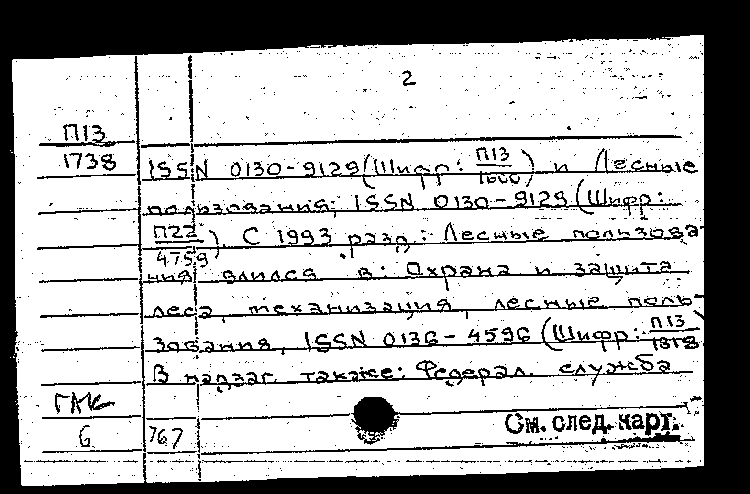 2
П13
1738
ISSN 0130-9129 (Шифр: П13/1600) и Лесные
пользования; ISSN 0130-9129 (Шифр:
П22/4759). С 1993 разд: Лесные пользова-
ния влился в: Охрана и защита
леса, механизация, лесные поль-
зования, ISSN 0136-4596 (Шифр: П13/1818)
В надзаг. также: Федерал. служба
ГАК
6 767
См. след. карт.